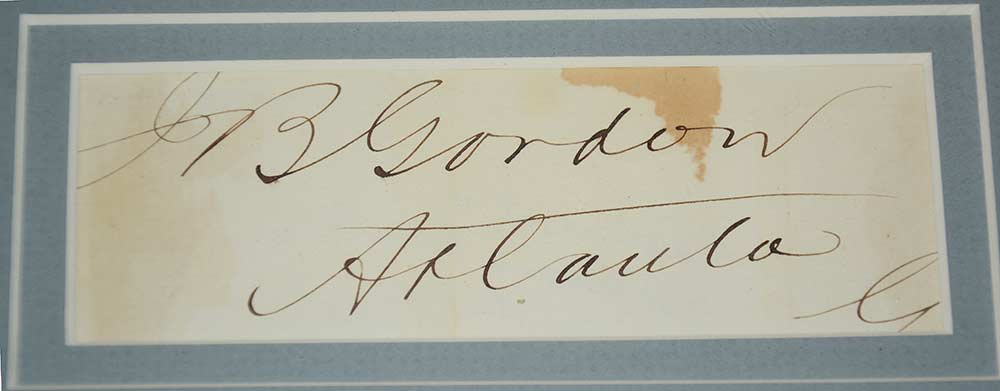 J B Gordon
Atlanta
G